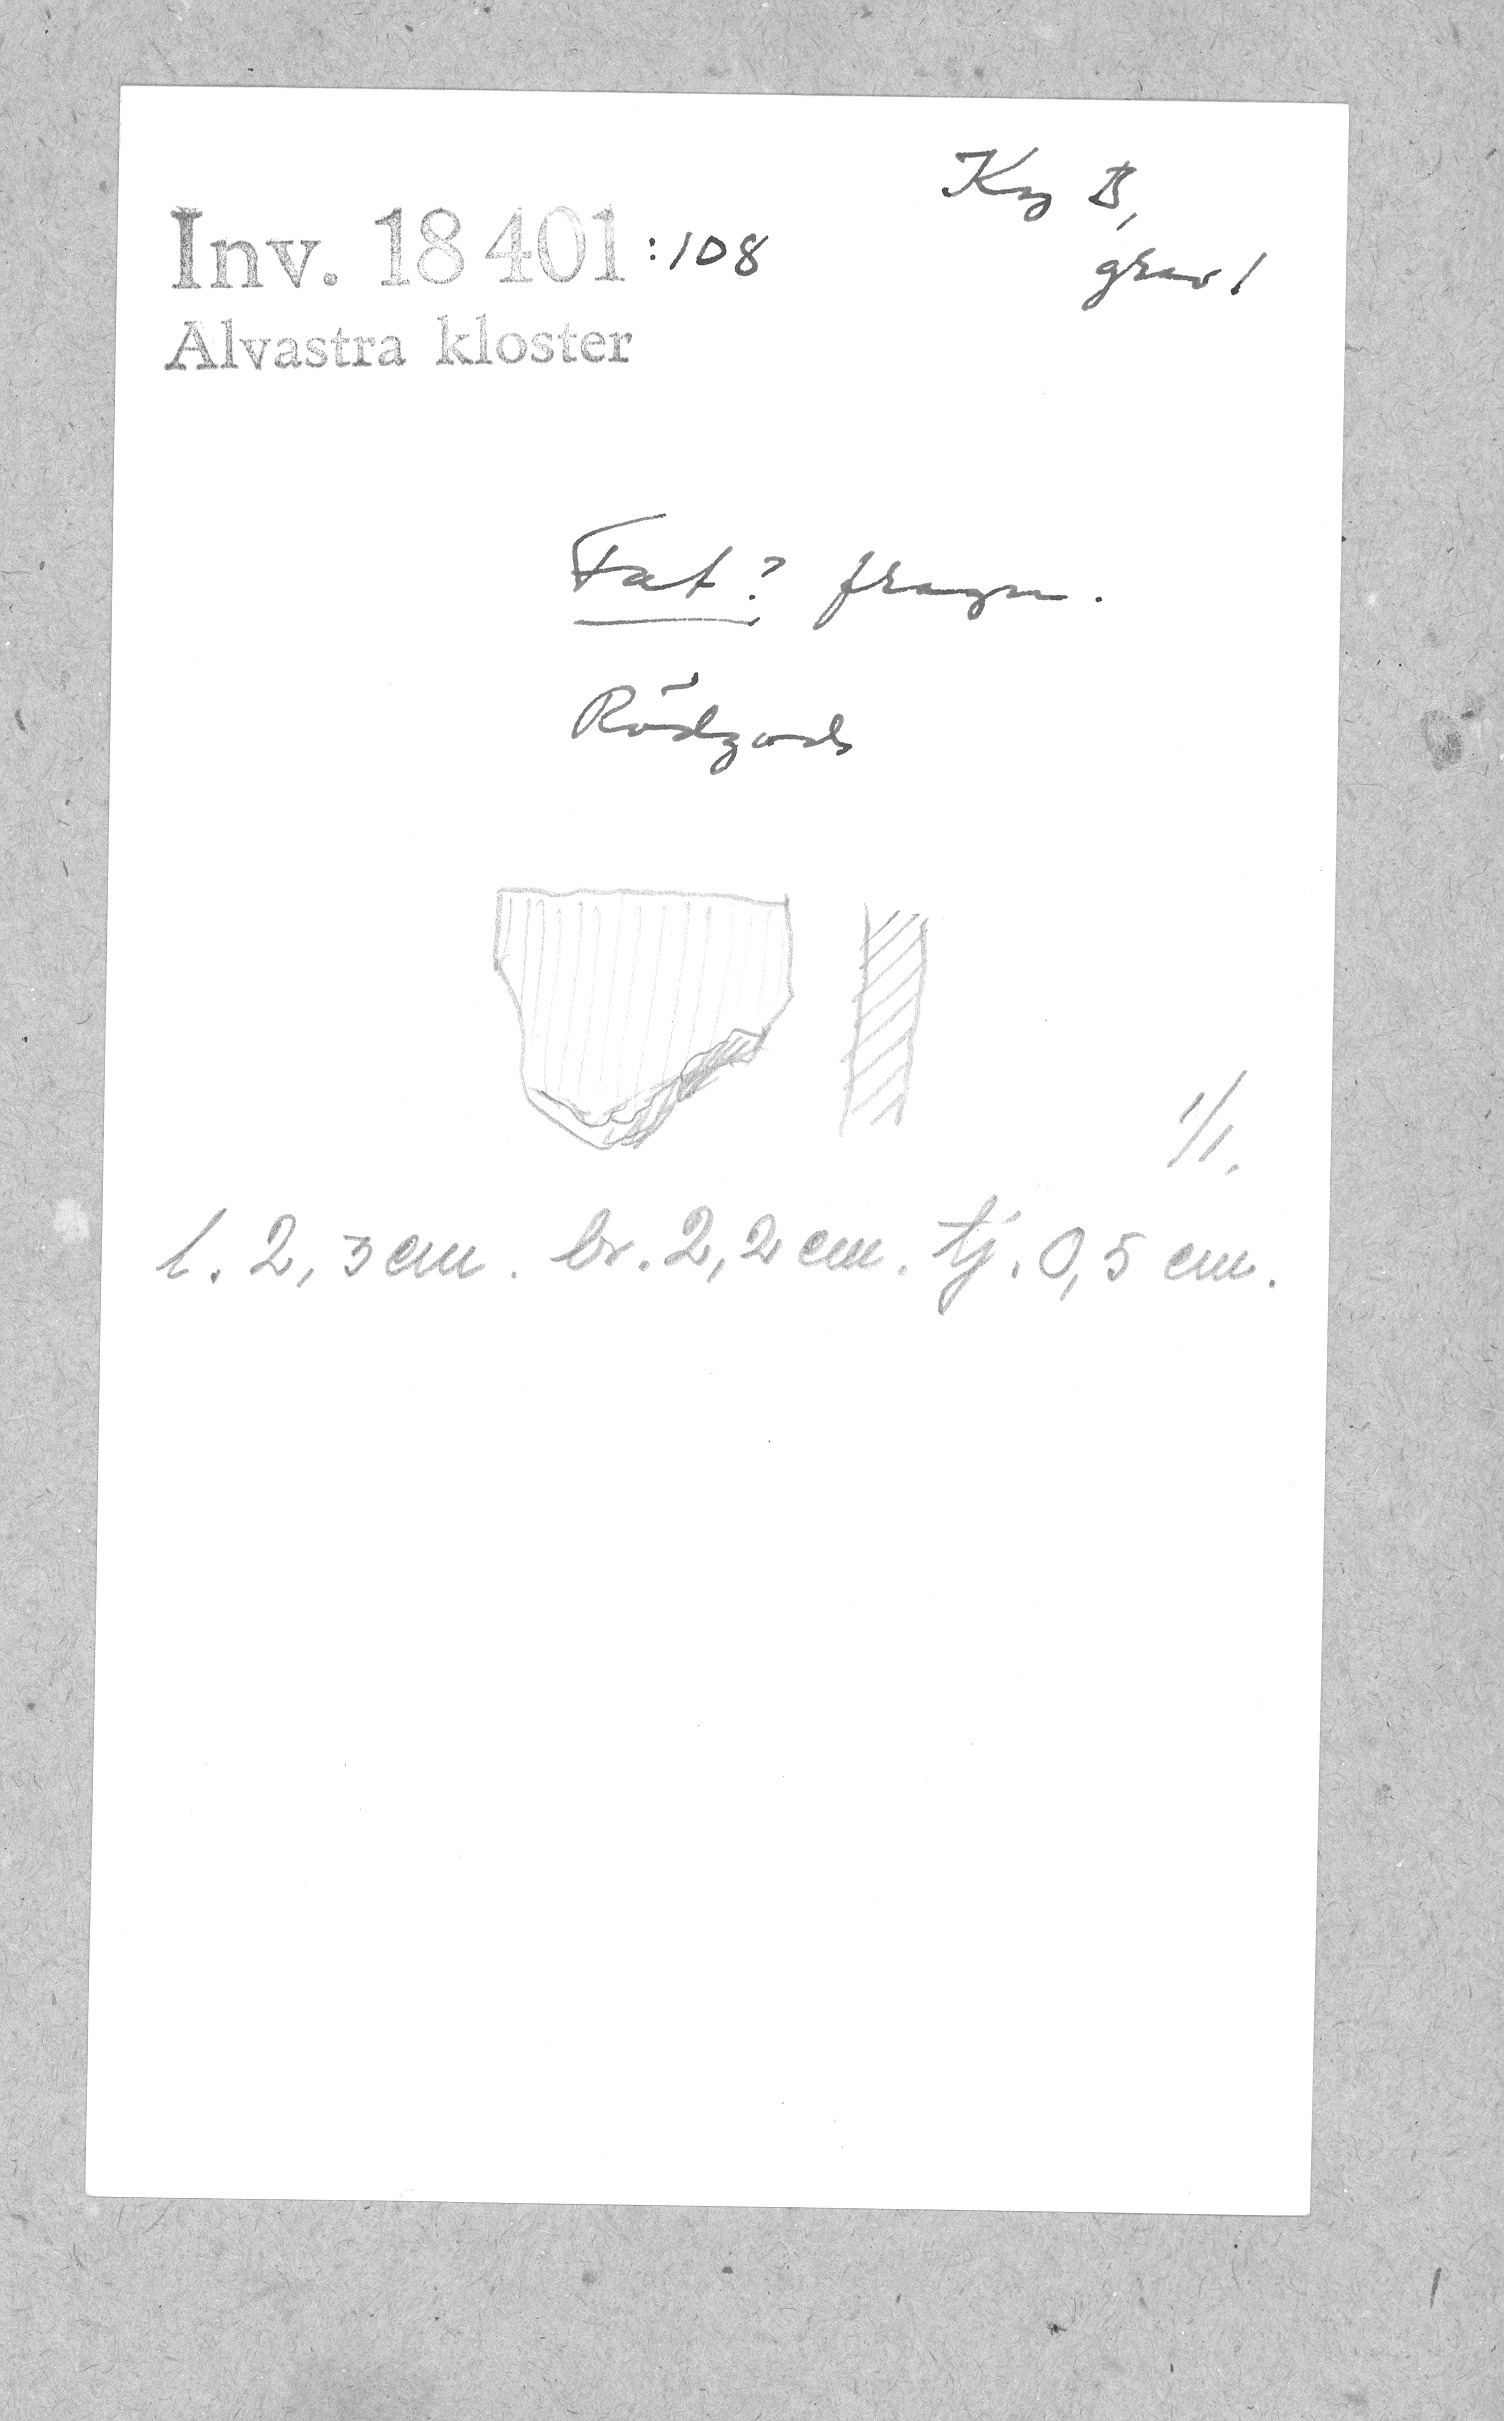 Inv. 18 401:108
Alvastra kloster
Kg B,
grav 1
Fat? fragm.
Rödgods
1/1.
l. 2,3 cm. br. 2,2 cm. tj. 0,5 cm.